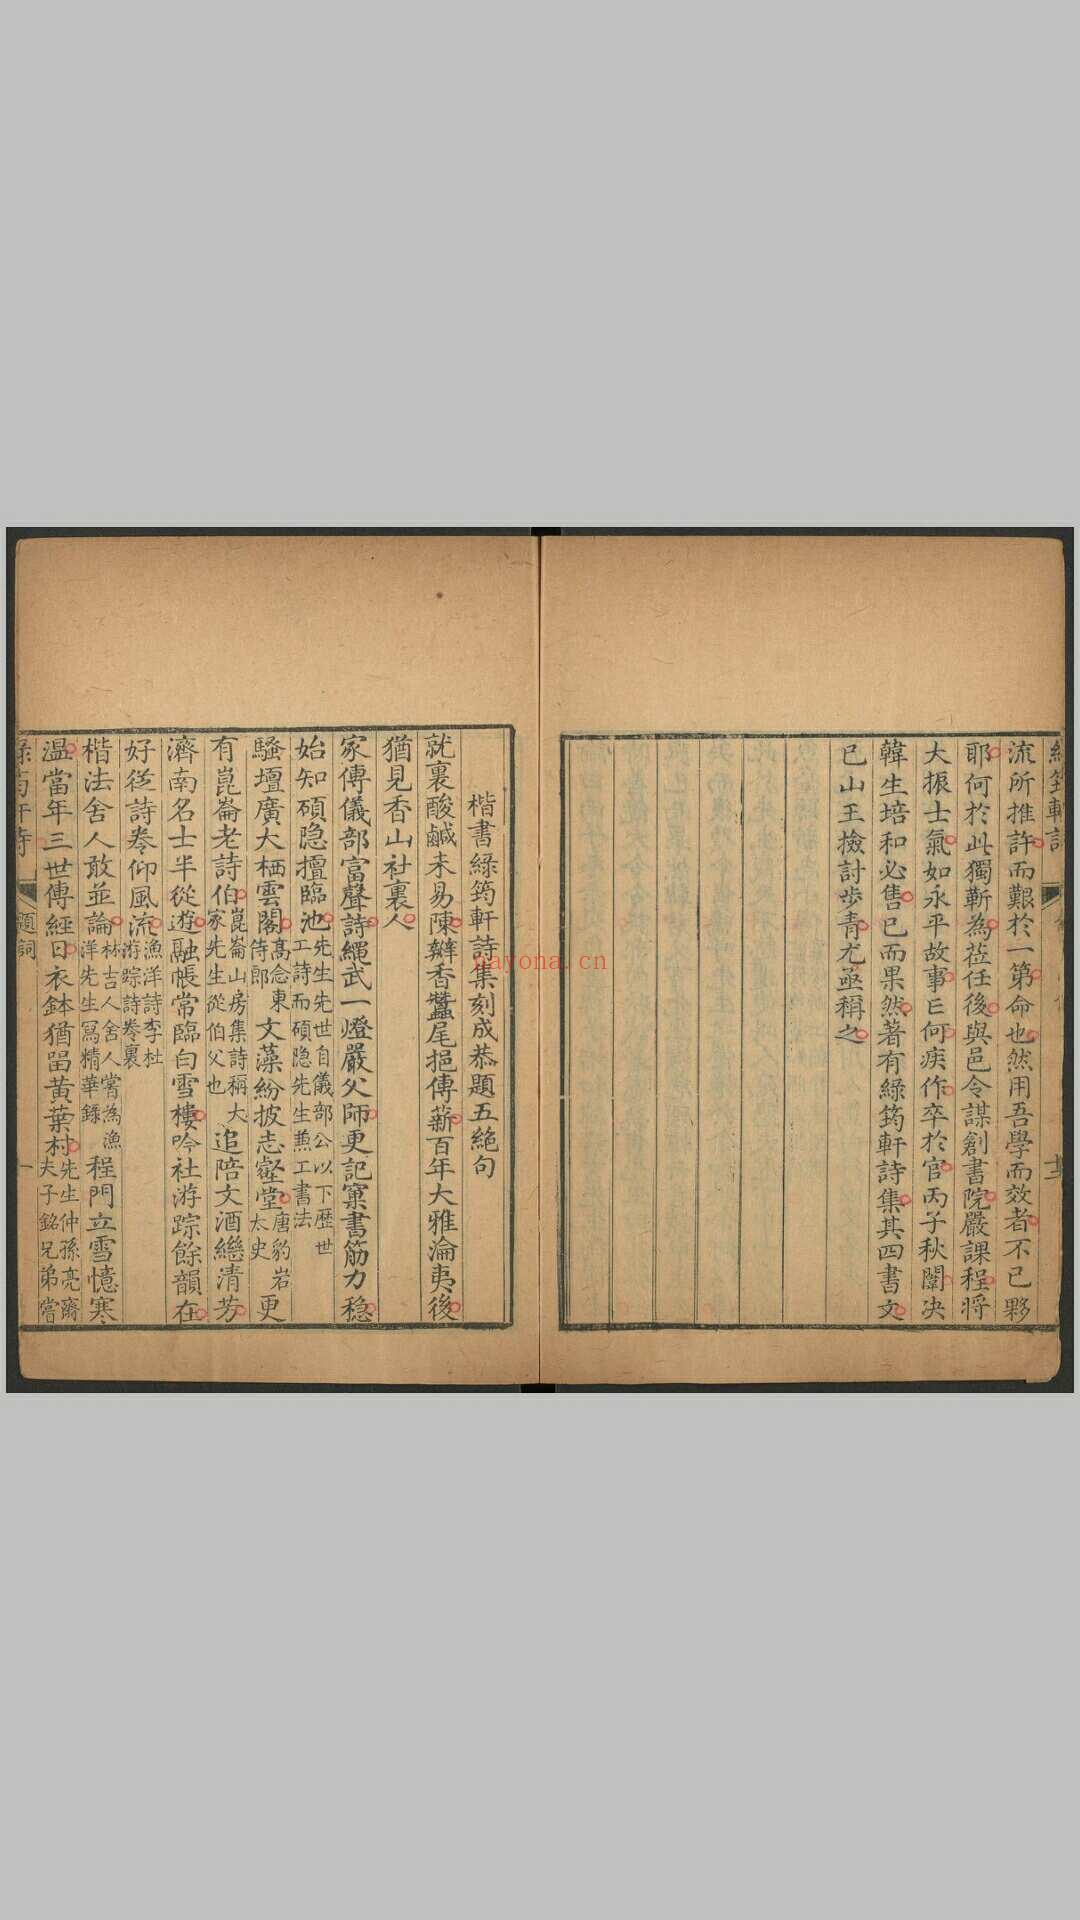 流所推許而艱於一第命也然用吾學而效者不已夥
耶何於此獨靳為莅任後與邑令謀創書院嚴課程將
大振士氣如永平故事亡何疾作卒於官丙子秋闈决
韓生培和必售已而果然著有綠筠軒詩集其四書文
已山王撿討步青尤亟稱之
楷書綠筠軒詩集刻成恭題五絶句
就裏酸鹹未易陳辦香蠶尾挹傳薪百年大雅淪夷後
猶見香山社裏人
家傳儀部富聲詩繩武一燈嚴父師更記窠書筋力稳
始知碩隐擅臨池先生先世自儀部公以下歷世工詩而碩隐先生燕工書法
騷壇廣大栖雲閣高念東侍郎文藻紛披志壑堂唐豹岩太史更
有崑崙老詩伯崑崙山房集詩稱大家先生從伯父也追陪文酒繼清芳
濟南名士半從遊融帳常臨白雪樓吟社游踪餘韻在
好從詩卷仰風流漁洋詩李杜游踪詩卷裏
楷法舍人敢並論林吉人舍人嘗為漁洋先生寫精華錄程門立雪憶寒
溫當年三世傳經日衣鉢猶畱黃葉村先生仲孫亮齋夫子銘兄弟嘗
題詞
一
nayona.cn